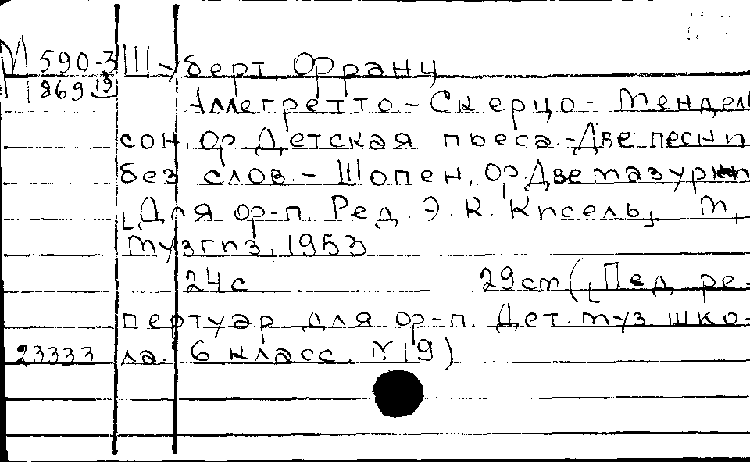 М 590-3 Шуберт, Франц
1869 19 Аллегретто-Скерцо-Мендел
сон, Ф. Детская пьеса.-Две песни
без слов-Шопен, Ф. Две мазурки
[Для ф-п. Ред. Э. К. Кисель] М,
Музгиз, 1953
24с 29см ([Пед. ре-
пертуар для ф-п. Дет. муз. шко-
23333 ла. 6 класс. N 19)